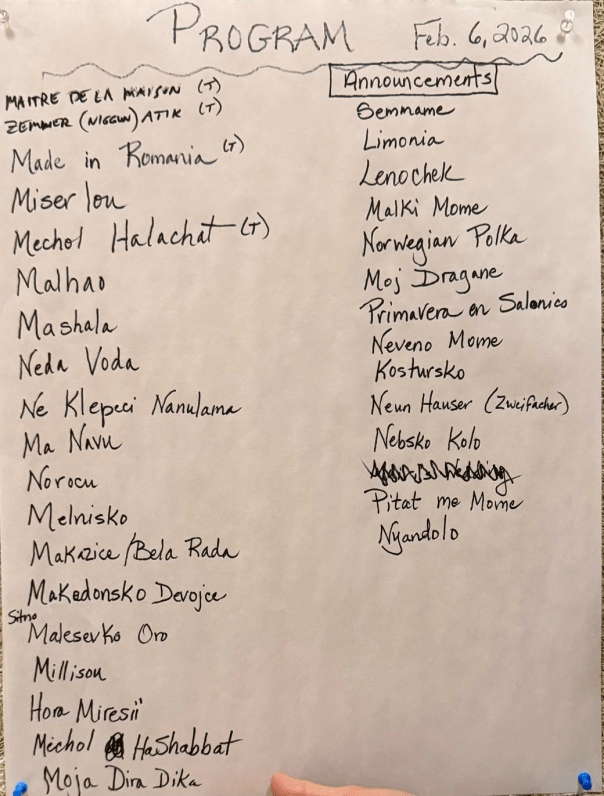 PROGRAM
Feb. 6, 2026
MAITRE DE LA MAISON (T)
ZEMMER (NIGGUN) ATIK (T)
Made in Romania (T)
Miserlou
Mechol Halachat (T)
Malhao
Mashala
Neda Voda
Ne Klepeci Nanulama
Ma Navu
Norocu
Melnisko
Makazice/Bela Rada
Makedonsko Devojce
Sitno
Malesevko Oro
Millisou
Hora Miresii
Mechol HaShabbat
Moja Dira Dika
Announcements
Semmame
Limonia
Lenochek
Malki Mome
Norwegian Polka
Moj Dragane
Primavera en Salonico
Neveno Mome
Kostursko
Neun Hauser (Zweifacher)
Nebsko Kolo
Pitat me Mome
Nyandolo